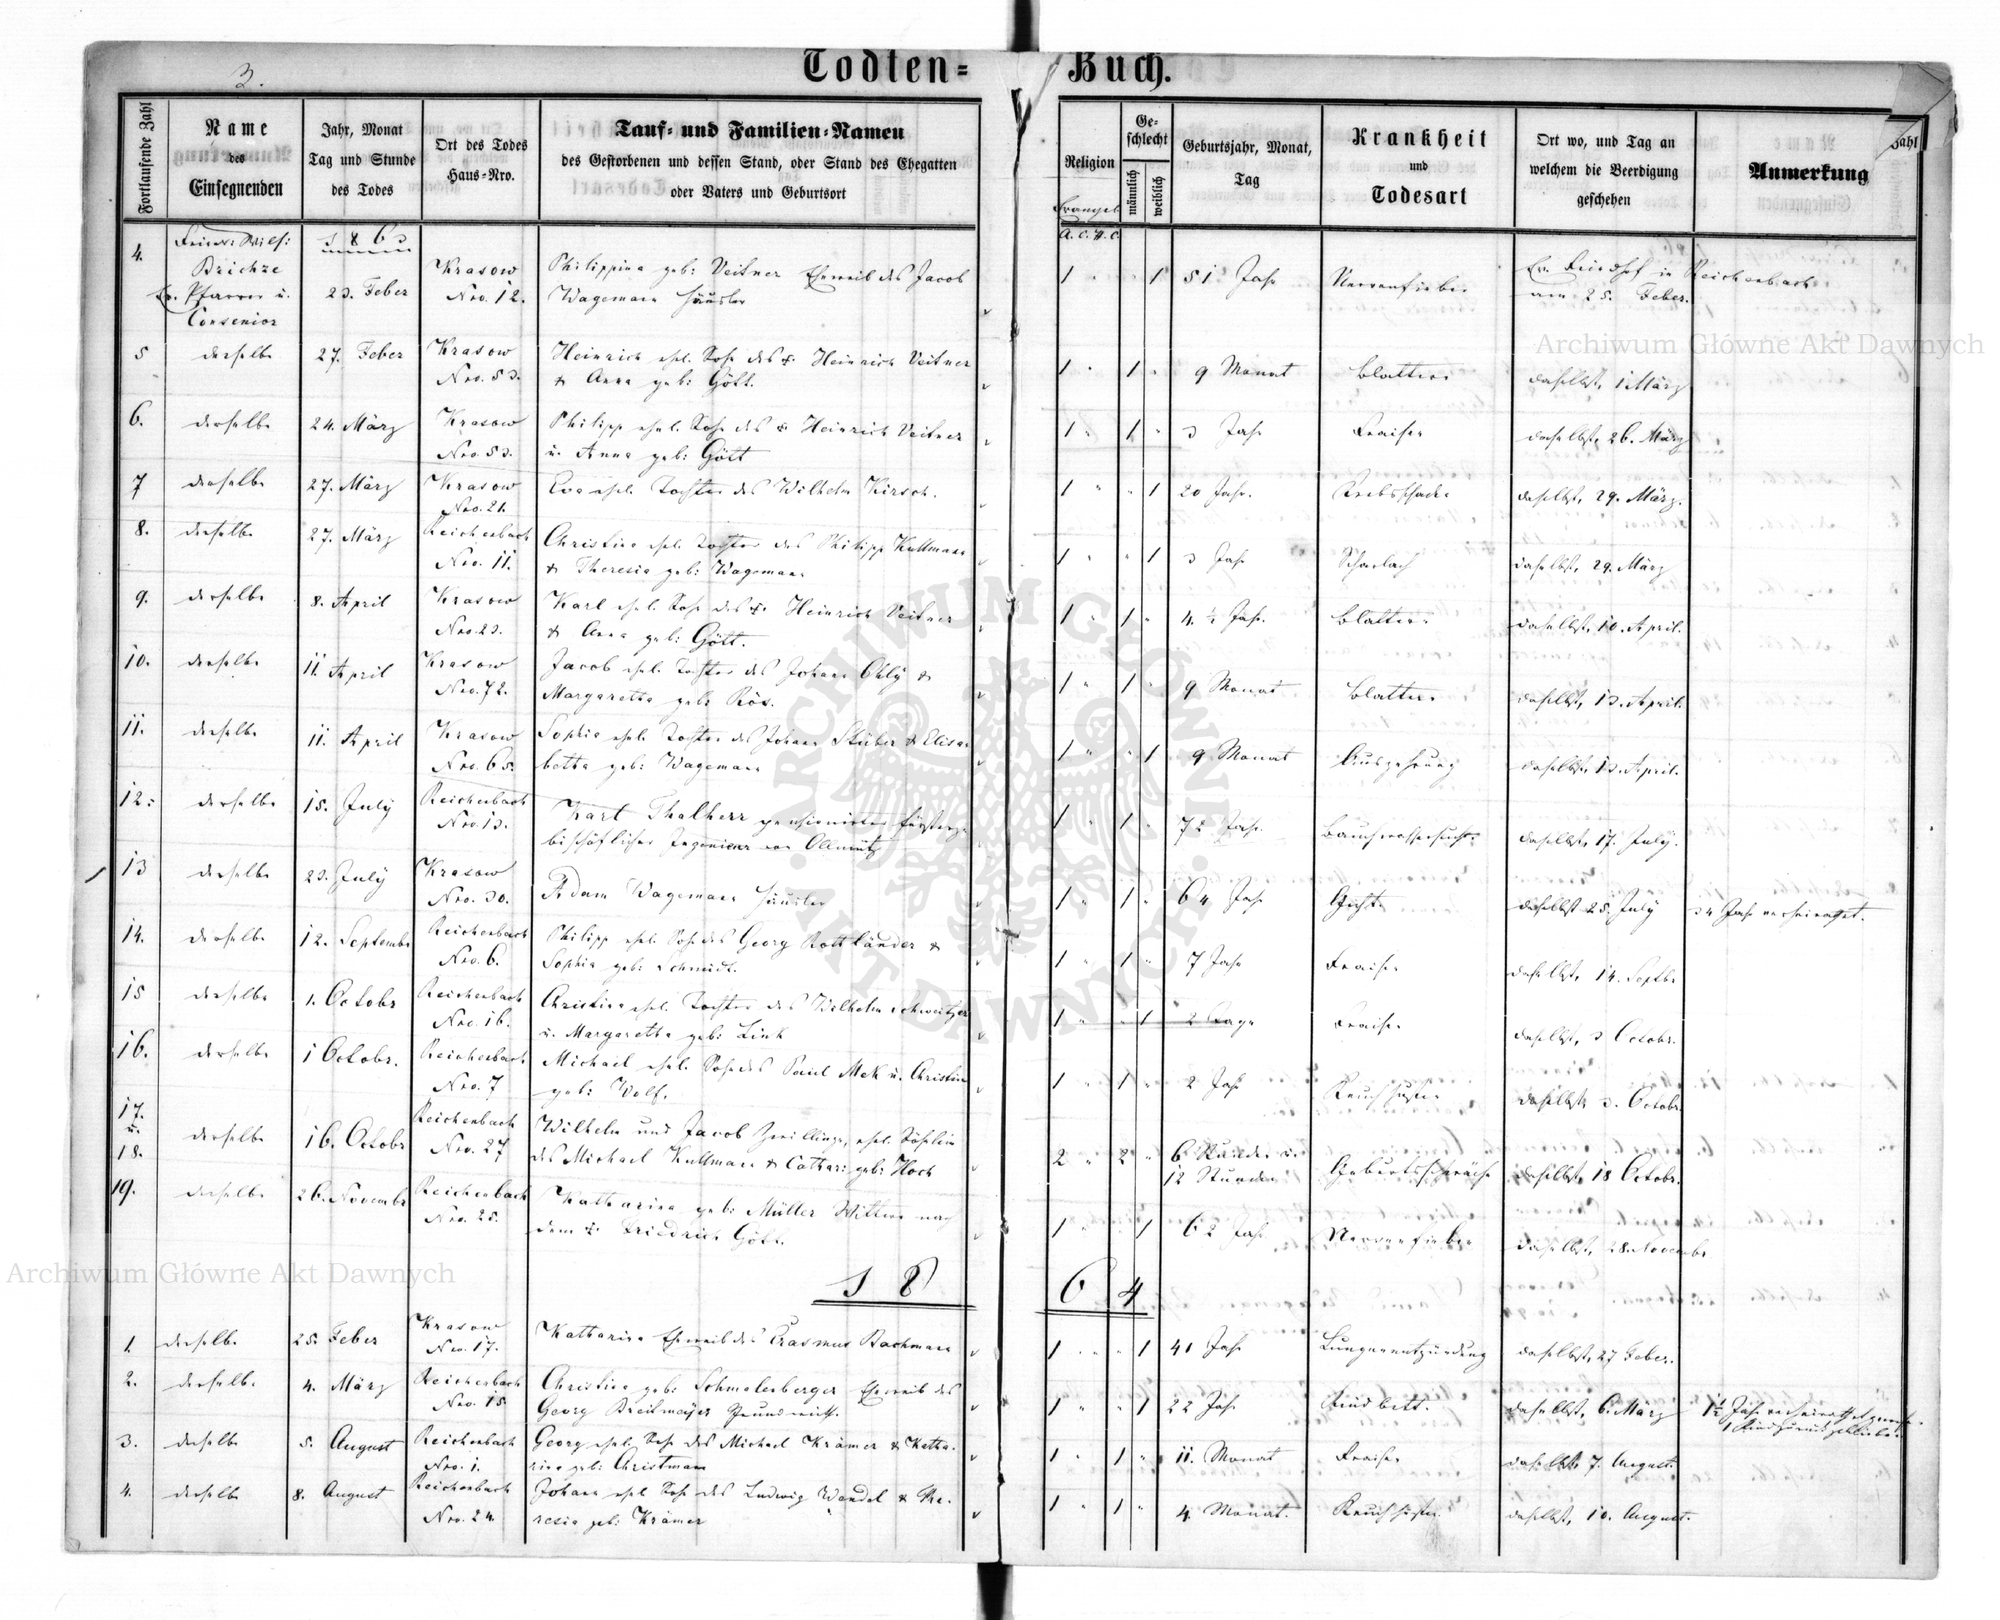 3.
Todten= Buch.
Fortlaufende Zahl
Name des Einsegnenden
Jahr, Monat Tag und Stunde des Todes
Ort des Todes Haus-Nro.
Tauf- und Familien-Namen des Gestorbenen und dessen Stand, oder Stand des Ehegatten oder Vaters und Geburtsort
Religion
Evangel. A. C. H. C.
Geschlecht
männlich
weiblich
Geburtsjahr, Monat, Tag
Krankheit und Todesart
Ort wo, und Tag an welchem die Beerdigung geschehen
Anmerkung
Zahl
186
4. Brichze Ev. Pfarrer u. Consenior 23. Feber Krasow Nro. 12. Philippina geb: Veitner Eheweib des Jacob Wagemann Häusler 1 " " 1 51 Jahr Nervenfieber Ev. Friedhof in Reichenbach am 25. Feber.
5 derselbe 27. Feber Krasow Nro. 53. Heinrich ehel. Sohn des Heinrich Veitner & Anna geb: Gött. 1 " 1 " 9 Monat Blattern daselbst, 1 März
6. derselbe 24. März Krasow Nro. 53. Philipp ehel. Sohn des Heinrich Veitner u. Anna geb: Gött 1 " 1 " 3 Jahr Fraisen daselbst, 26. März
7 derselbe 27. März Krasow Nro. 21. Eva ehel. Tochter des Wilhelm Kirsch. 1 " " 1 20 Jahr. Krebsschaden daselbst, 29. März.
8. derselbe 27. März Reichenbach Nro. 11. Christina ehel. Tochter des Philipp Kullmann & Theresia geb: Wagemann 1 " " 1 3 Jahr Scharlach daselbst, 29. März
9. derselbe 8. April Krasow Nro. 23. Karl ehel. Sohn des Heinrich Veitner & Anna geb: Gött. 1 " 1 " 4. ½ Jahr. Blattern daselbst, 10. April.
10. derselbe 11. April Krasow Nro. 72. Jacob ehel. Tochter des Johann Ohly & Margaretha geb: Rös. 1 " 1 " 9 Monat Blattern daselbst, 13. April.
11. derselbe 11. April Krasow Nro. 65. Sophia ehel. Tochter des Johann Stüber & Elisabetha geb: Wagemann 1 " " 1 9 Monat Auszehrung daselbst, 13. April.
12: derselbe 15. July Reichenbach Nro. 13. Karl Thalherr pensionirter fürsterzbischöflicher Ingenieur von Ollmütz 1 " 1 " 72 Jahr. Bauchwassersucht. daselbst, 17. July.
13 derselbe 23. July Krasow Nro. 30. Adam Wagemann Häusler 1 " 1 " 64 Jahr Gicht. daselbst 25. July 34 Jahr verheirathet.
14. derselbe 12. Septembr Reichenbach Nro. 6. Philipp ehel. Sohn des Georg Rottländer & Sophia geb: Schmidt. 1 " 1 " 7 Jahr Fraisen daselbst, 14. Septbr
15 derselbe 1. Octobr Reichenbach Nro. 16. Christina ehel. Tochter des Wilhelm Schweitzer u. Margaretha geb: Link 1 " " 1 2 Tage Fraisen daselbst, 3 Octobr.
16. derselbe 1 Octobr. Reichenbach Nro. 7 Michael ehel. Sohn des Paul Mek u. Christina geb: Wolf. 1 " 1 " 2 Jahr Keuchhusten daselbst, 3. Octobr.
17. u. 18. derselbe 16. Octobr Reichenbach Nro. 27 Wilhelm und Jacob Zwillinge, ehel. Söhnlein des Michael Kullmann & Cathar: geb: Hoch 2 " 2 " 6 Stunden u. 12 Stunden Geburtsschwäche daselbst, 18 Octobr.
19. derselbe 26. Novembr Reichenbach Nro. 25. Katharina geb: Müller Wittwe nach dem Friedrich Gött. 1 " " 1 62 Jahr Nervenfieber daselbst, 28. Novembr
18 6 4
1. derselbe 25. Feber Krasow Nro. 17. Katharina Eheweib des Erasmus Bachmann 1 " " 1 41 Jahr Lungenentzündung daselbst, 27 Feber.
2. derselbe 4. März Reichenbach Nro. 15. Christina geb: Schmalenberger Eheweib des Georg Breitmeyer Grundwirth. 1 " " 1 22 Jahr Kindbett. daselbst, 6. März 1½ Jahr verheirathet
3. derselbe 5. August Reichenbach Nro. 1. Georg ehel. Sohn des Michael Krämer & Katharina geb: Christmann 1 " 1 " 11. Monat Fraisen daselbst, 7. August.
4. derselbe 8. August Reichenbach Nro. 24. Johann ehel. Sohn des Ludwig Wendel & Theresia geb: Krämer 1 " 1 " 4. Monat. Keuchhusten daselbst, 10. August.
Archiwum Główne Akt Dawnych
Archiwum Główne Akt Dawnych
ARCHIWUM GŁÓWNE AKT DAWNYCH